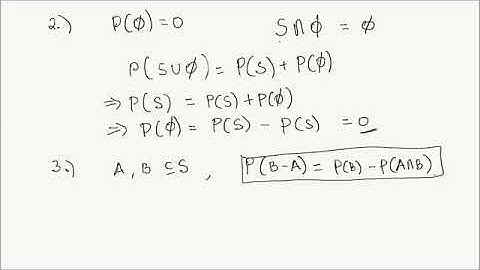 2.) P(ϕ) = 0 S∩ϕ = ϕ
P(S∪ϕ) = P(S) + P(ϕ)
⇒ P(S) = P(S) + P(ϕ)
⇒ P(ϕ) = P(S) − P(S) = 0
3.) A, B ⊆ S, P(B−A) = P(B) − P(A∩B)